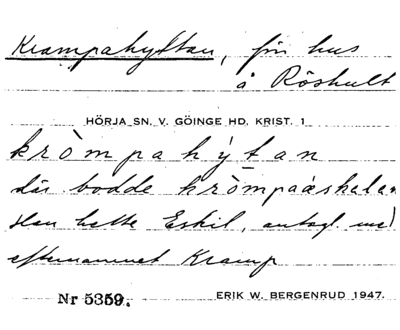 Krampahyttan, för hus
å Röshult
HÖRJA SN. V. GÖINGE HD. KRIST. 1
kròmpahýtan
där bodde kròmpaáskelan
Han hette Eskil, antagl. med
efternamnet Kramp
Nr 5359.
ERIK W. BERGENRUD 1947.